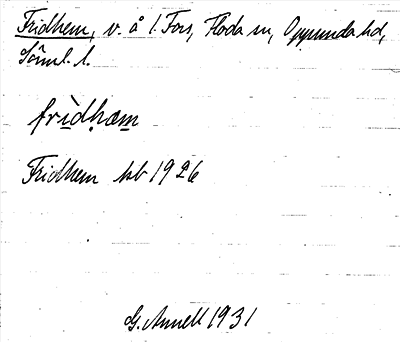 Fridhem, v. å l. Fors, Floda sn, Oppunda hd,
Söml. l.
frìdhæm
Fridhem kb 1926
G. Annell 1931